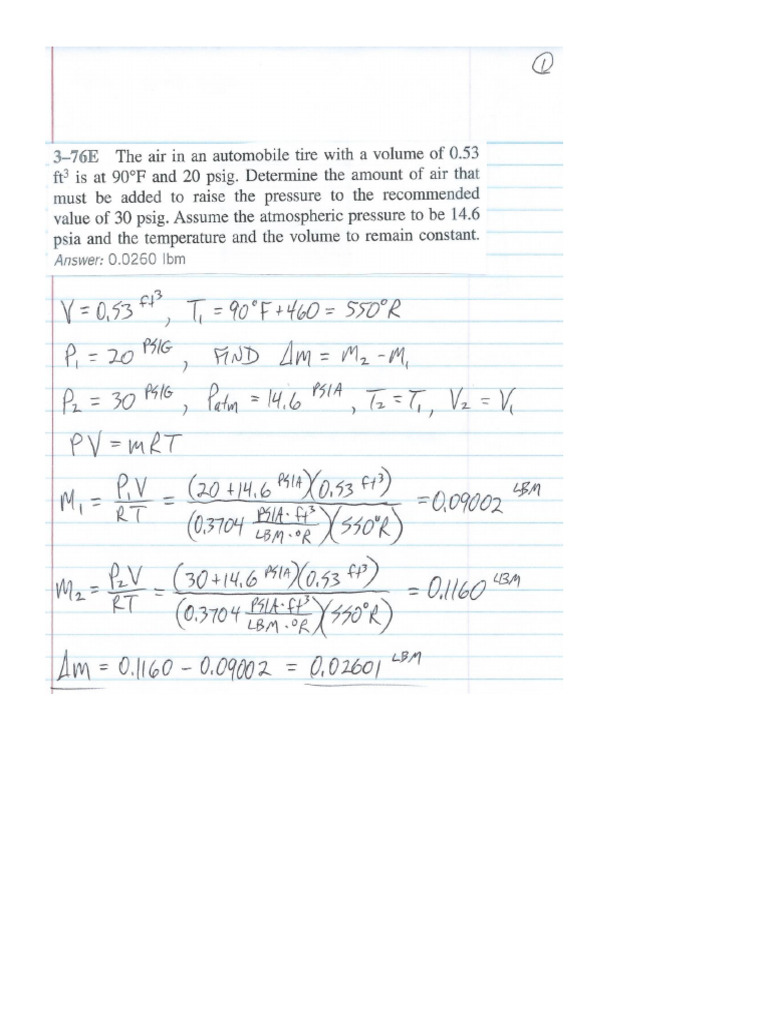 ①
3–76E The air in an automobile tire with a volume of 0.53
ft³ is at 90°F and 20 psig. Determine the amount of air that
must be added to raise the pressure to the recommended
value of 30 psig. Assume the atmospheric pressure to be 14.6
psia and the temperature and the volume to remain constant.
Answer: 0.0260 lbm
V = 0.53 ft³, T₁ = 90°F + 460 = 550°R
P₁ = 20 PSIG, FIND Δm = M₂ - M₁
P₂ = 30 PSIG, Patm = 14.6 PSIA, T₂ = T₁, V₂ = V₁
PV = mRT
M₁ = P₁V / RT = (20 + 14.6 PSIA)(0.53 ft³) / (0.3704 PSIA·ft³ / LBM·°R)(550°R) = 0.09002 LBM
M₂ = P₂V / RT = (30 + 14.6 PSIA)(0.53 ft³) / (0.3704 PSIA·ft³ / LBM·°R)(550°R) = 0.1160 LBM
Δm = 0.1160 - 0.09002 = 0.02601 LBM